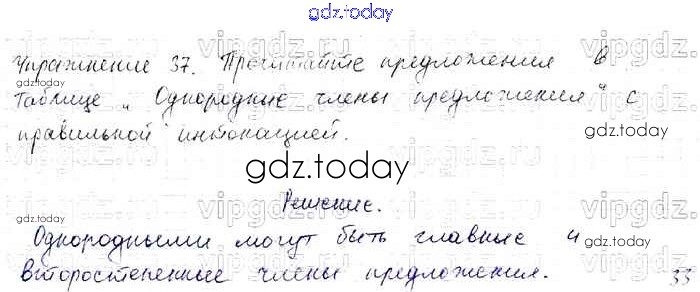 gdz.today
Упражнение 37. Прочитайте предложения в
таблице „Однородные члены предложения“ с
правильной интонацией.
gdz.today
Решение.
Однородными могут быть главные и
второстепенные члены предложения.
33